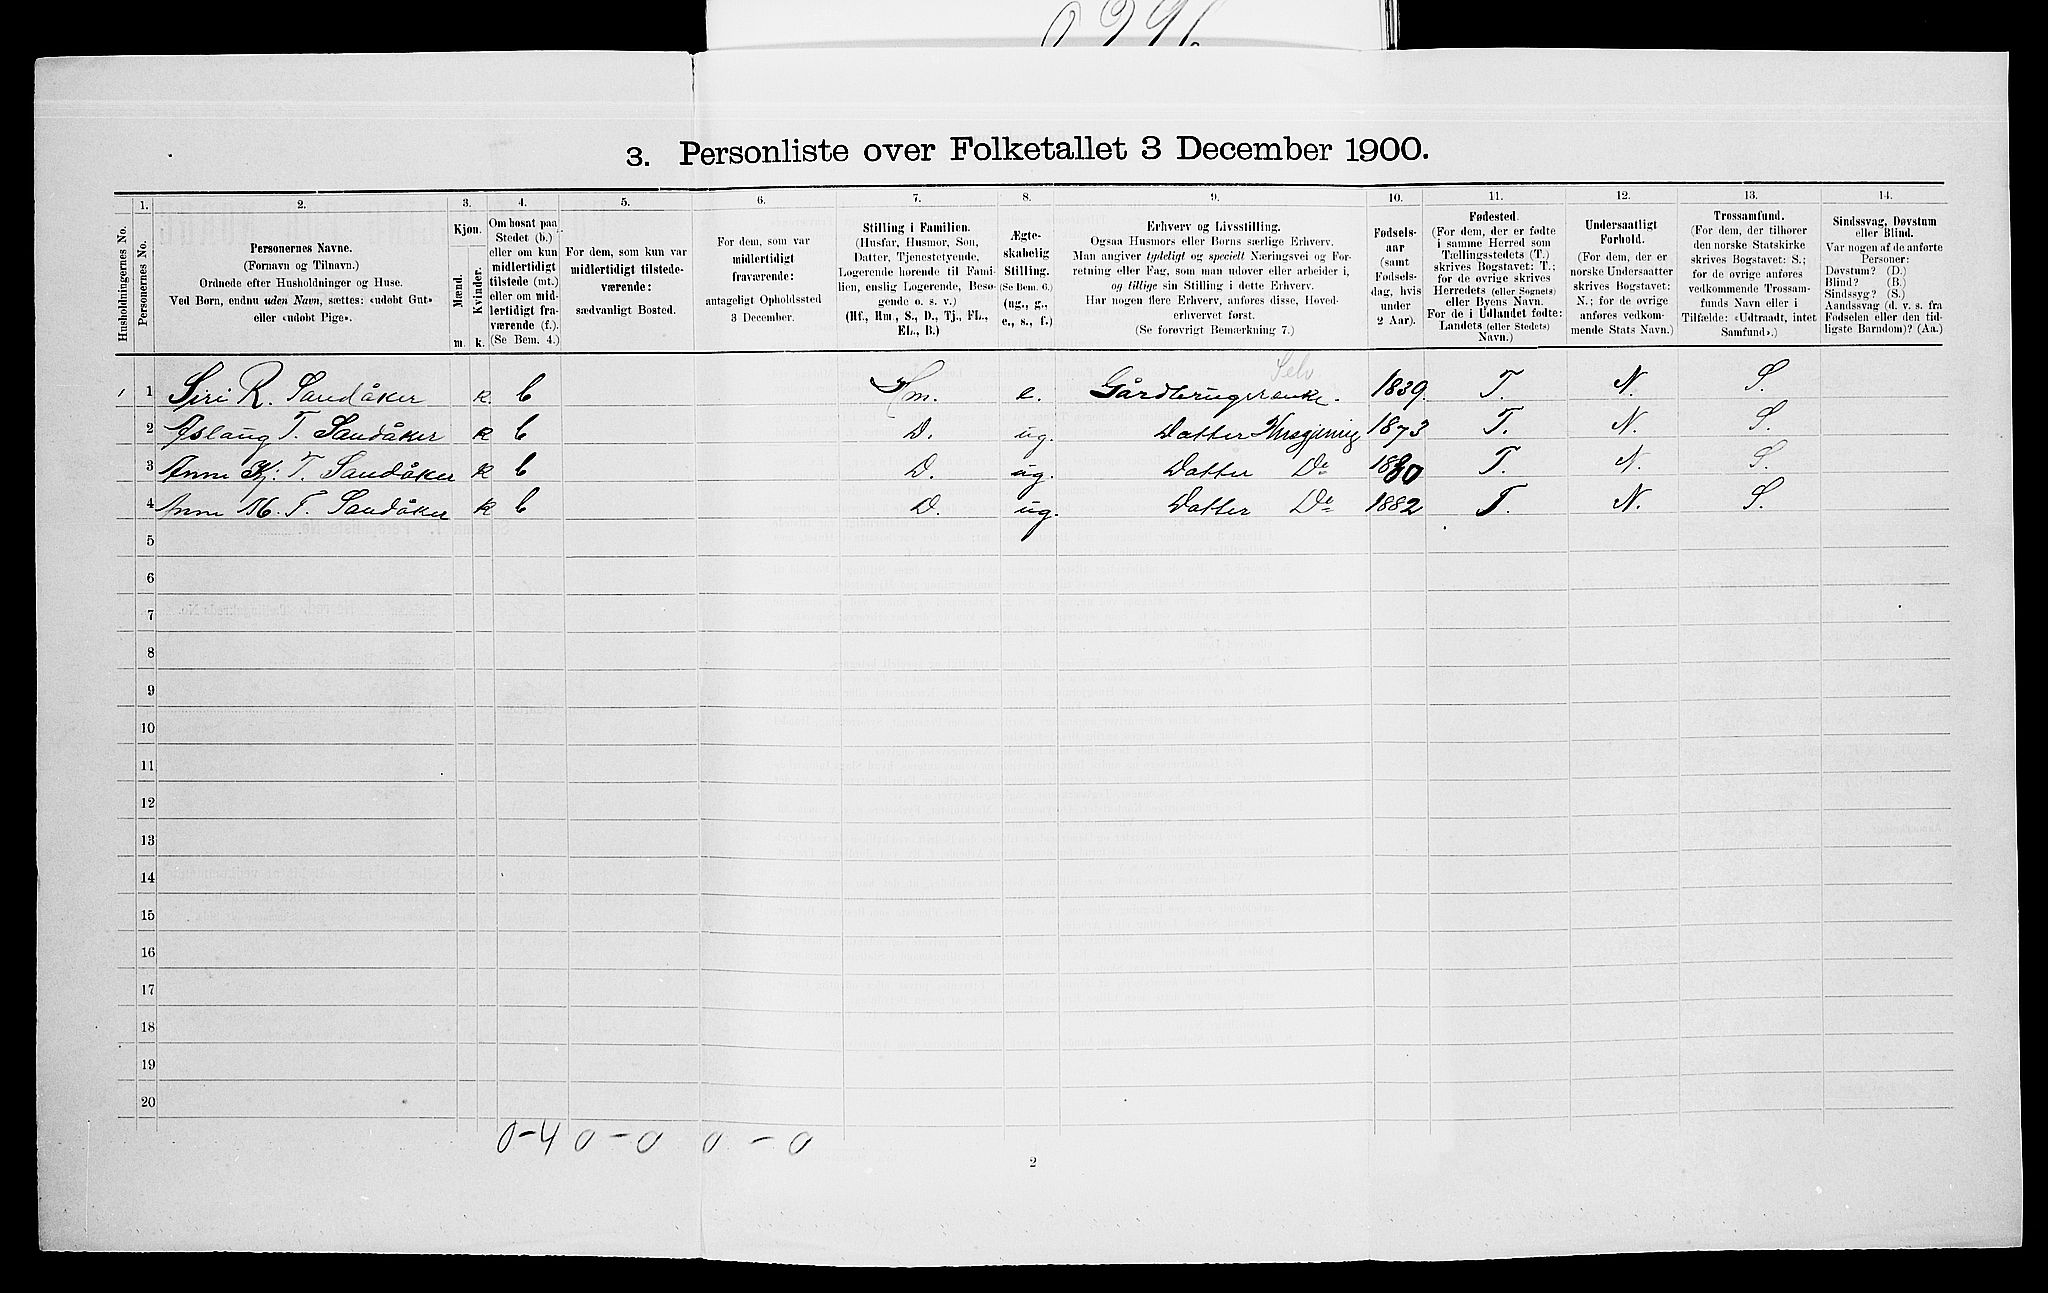 3. Personliste over Folketallet 3 December 1900.
1. 2. 3. 4. 5. 6. 7. 8. 9. 10. 11. 12. 13. 14.
Husholdningernes No.
Personernes No.
Personernes Navne.
(Fornavn og Tilnavn.)
Ordnede efter Husholdninger og Huse.
Ved Børn, endnu uden Navn, sættes: «udøbt Gut»
eller «udøbt Pige».
Kjøn.
Mænd.
Kvinder.
m. k.
Om bosat paa
Stedet (b.)
eller om kun
midlertidigt
tilstede (mt.)
eller om mid-
lertidigt fra-
værende (f.).
(Se Bem. 4.)
For dem, som kun var
midlertidigt tilstede-
værende:
sædvanligt Bosted.
For dem, som var
midlertidigt
fraværende:
antageligt Opholdssted
3 December.
Stilling i Familien.
(Husfar, Husmor, Søn,
Datter, Tjenestetyende,
Logerende hørende til Fami-
lien, enslig Logerende, Besø-
gende o. s. v.)
(Hf., Hm., S., D., Tj., FL.,
EL., B.)
Ægte-
skabelig
Stilling.
(Se Bem. 6.)
(ug., g.,
e., s., f.)
Erhverv og Livsstilling.
Ogsaa Husmors eller Børns særlige Erhverv.
Man angiver tydeligt og specielt Næringsvei og For-
retning eller Fag, som man udøver eller arbeider i,
og tillige sin Stilling i dette Erhverv.
Har nogen flere Erhverv, anføres disse, Hoved-
erhvervet først.
(Se forøvrigt Bemærkning 7.)
Fødsels-
aar
(samt
Fødsels-
dag, hvis
under
2 Aar).
Fødested.
(For dem, der er fødte
i samme Herred som
Tællingsstedets (T.)
skrives Bogstavet: T.;
for de øvrige skrives
Herredets (eller Sognets)
eller Byens Navn.
For de i Udlandet fødte:
Landets (eller Stedets)
Navn.)
Undersaatligt
Forhold.
(For dem, der er
norske Undersaatter
skrives Bogstavet:
N.; for de øvrige
anføres vedkom-
mende Stats Navn.)
Trossamfund.
(For dem, der tilhører
den norske Statskirke
skrives Bogstavet: S.;
for de øvrige anføres
vedkommende Trossam-
funds Navn eller i
Tilfælde: «Udtraadt, intet
Samfund».)
Sindssvag, Døvstum
eller Blind.
Var nogen af de anførte
Personer:
Døvstum? (D.)
Blind? (B.)
Sindssyg? (S.)
Aandssvag (d. v. s. fra
Fødselen eller den tid-
ligste Barndom)? (Aa.)
Selv
1 1 Siri R. Sandåker k b Hm. e. Gårdbrugerenke. 1839. T. N. S.
2 Aslaug T. Sandåker k b D. ug. Datter Husgjerning 1873 T. N. S.
3 Anne Kj. T. Sandåker k b D. ug. Datter Do 1880 T. N. S.
4 Anne M. T. Sandåker k b D. ug. Datter Do 1882 T. N. S.
5
6
7
8
9
10
11
12
13
14
15
16
17
18
19
20
0-4 0-0 0-0
2